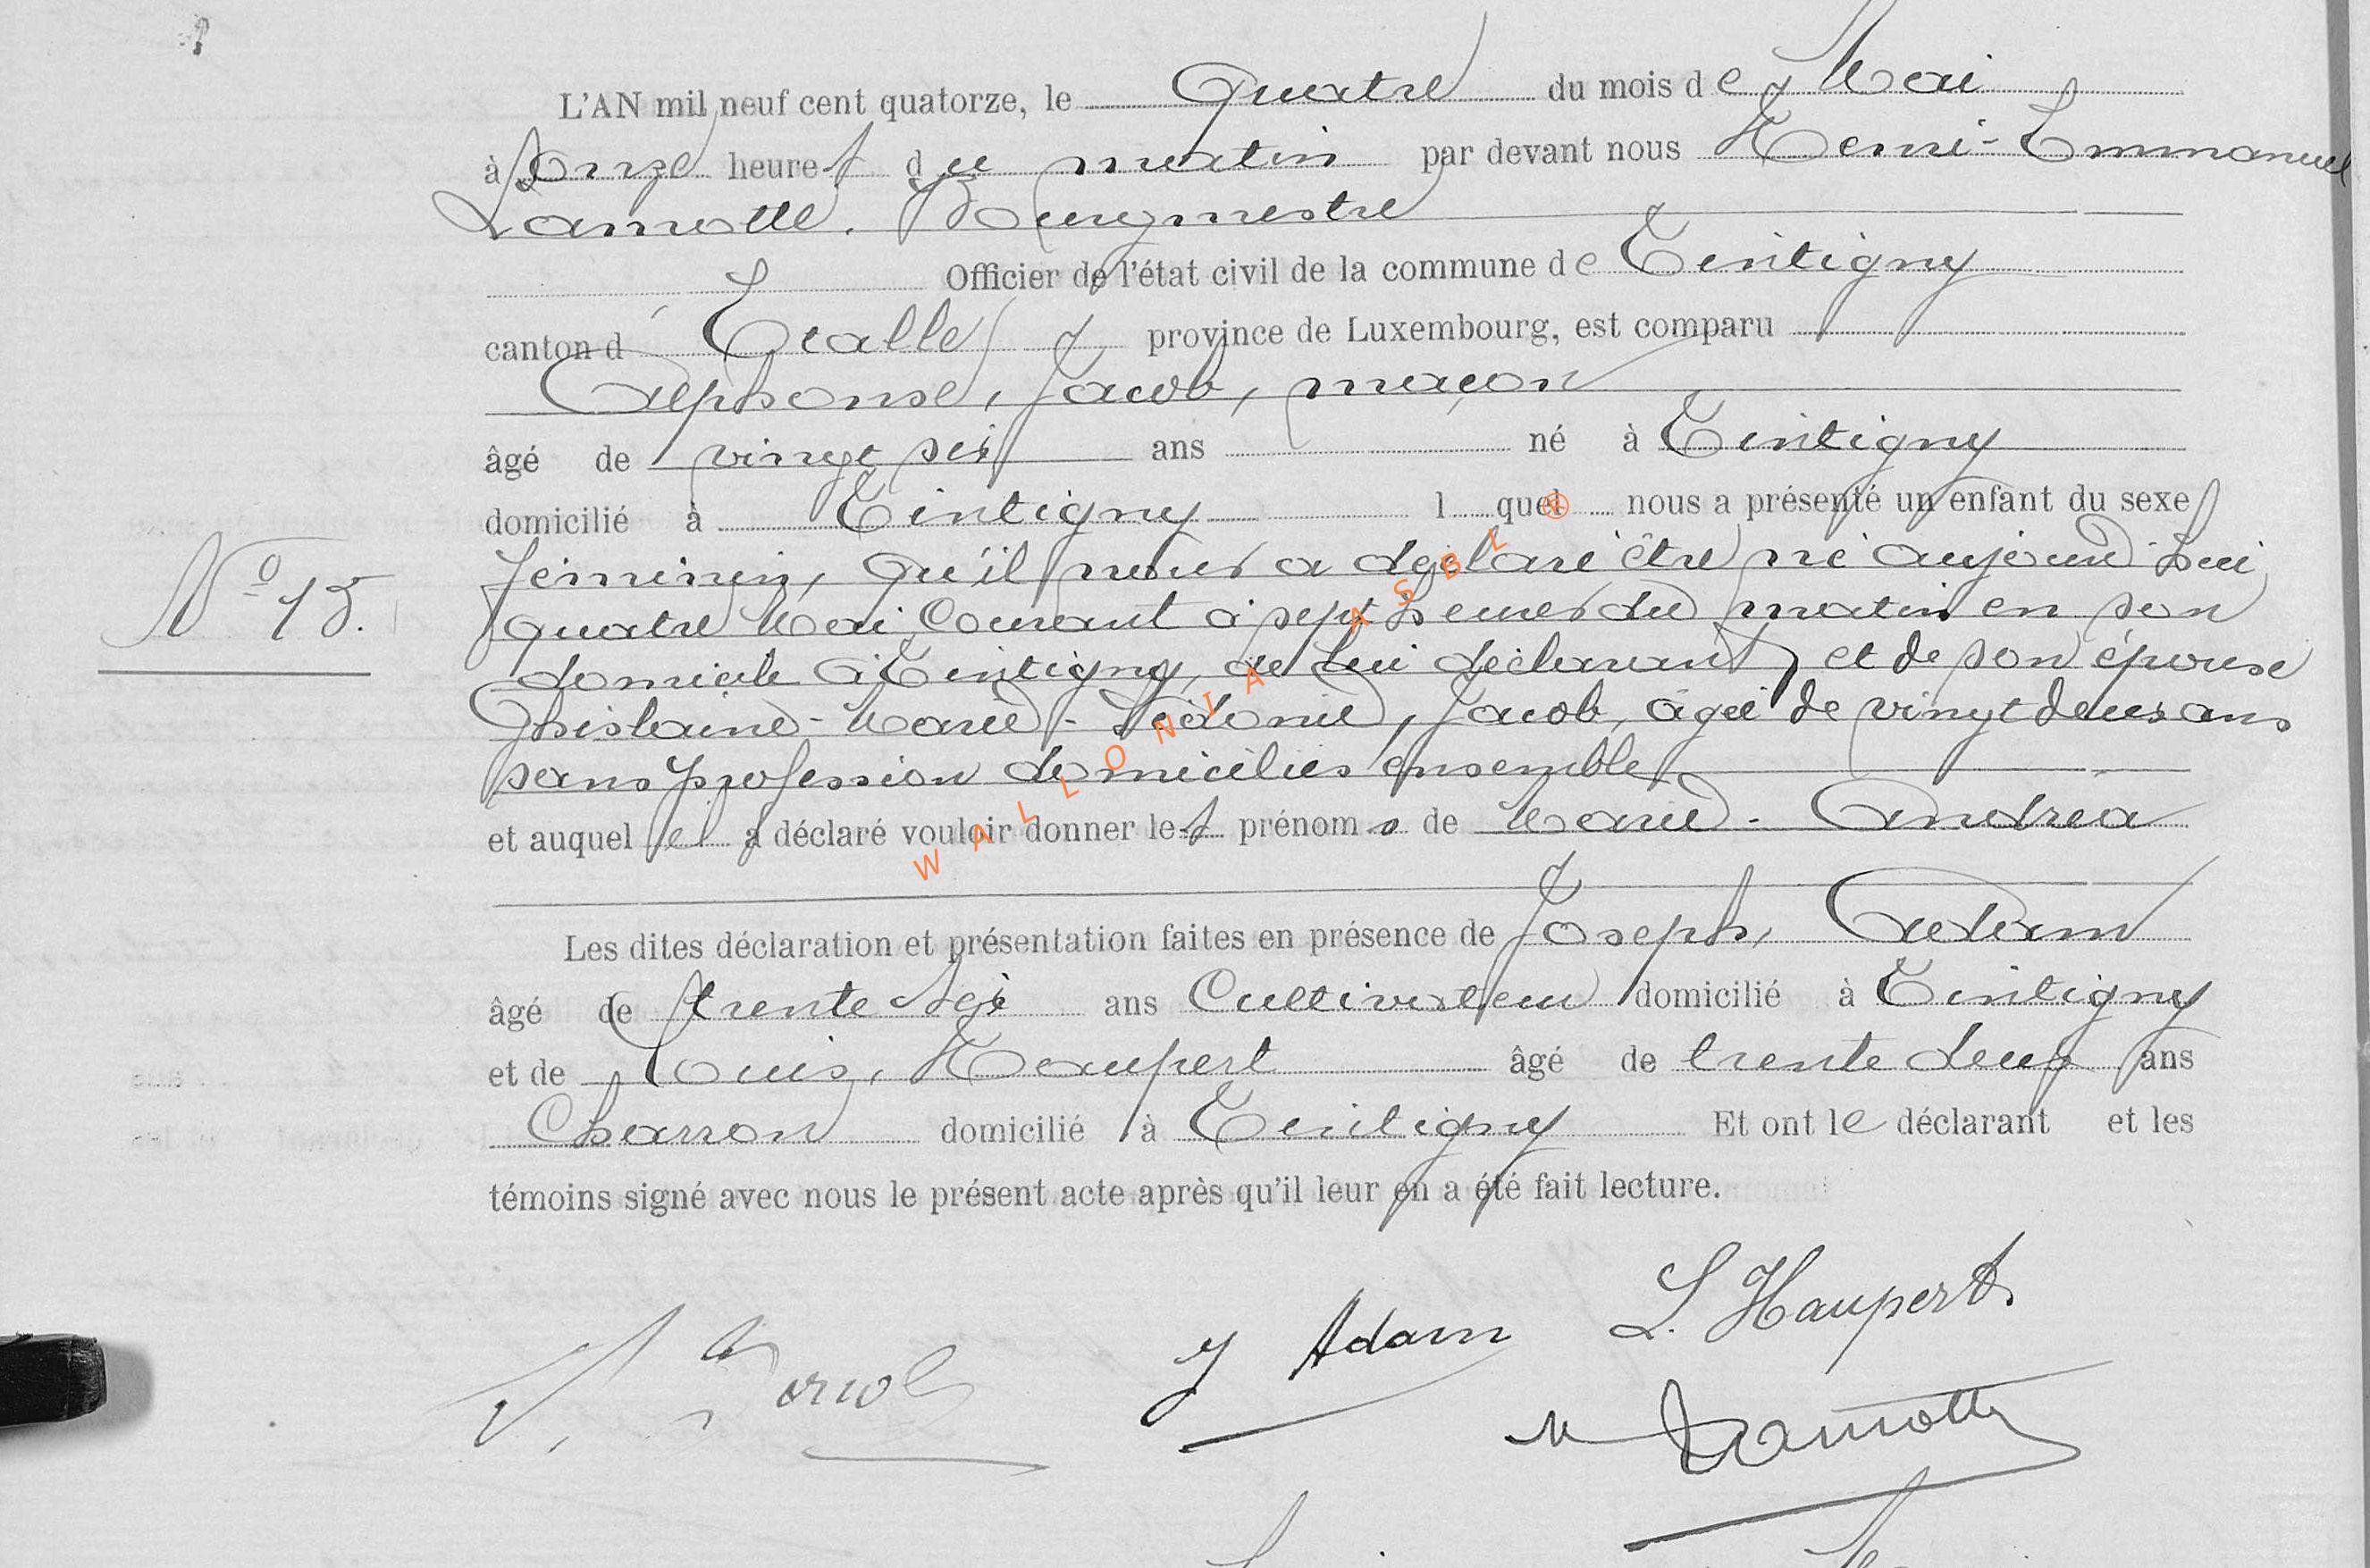 L'AN mil neuf cent quatorze, le Quatre du mois de Mai
à onze heures du matin par devant nous Henri-Emmanuel
Lamotte, Bourgmestre
Officier de l'état civil de la commune de Tintigny
canton d'Etalle province de Luxembourg, est comparu
Alphonse, Jacob, maçon
âgé de vingt six ans né à Tintigny
domicilié à Tintigny l quel nous a présenté un enfant du sexe
féminin, qu'il nous a déclaré être né aujourd'hui
N° 15.
quatre Mai Courant à sept heures du matin en son
domicile à Tintigny, de lui déclarant, et de son épouse
Ghislaine-Marie-Sidonie, Jacob, âgée de vingt deux ans
sans profession domiciliés ensemble
et auquel il a déclaré vouloir donner les prénoms de Marie-Andréa
Les dites déclaration et présentation faites en présence de Joseph, Adam
âgé de trente six ans Cultivateur domicilié à Tintigny
et de Louis, Haupert âgé de trente deux ans
Charron domicilié à Tintigny Et ont le déclarant et les
témoins signé avec nous le présent acte après qu'il leur en a été fait lecture.
L. Haupert
J Adam
A. Jacob
H Lamotte
WALLONIA ASBL ®